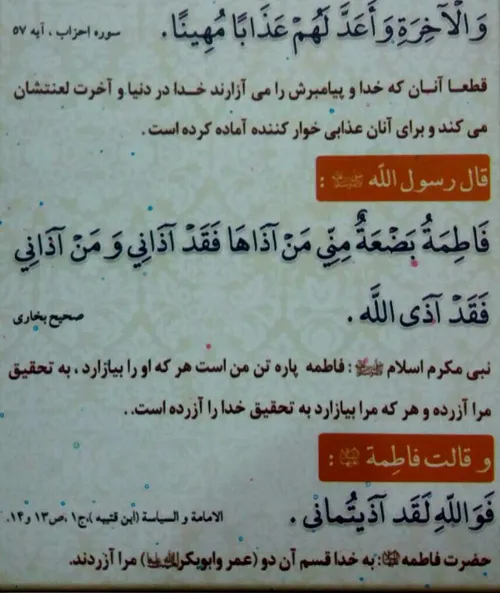 وَالْآخِرَةِ وَأَعَدَّ لَهُمْ عَذَابًا مُهِينًا. سوره احزاب ، آیه ۵۷
قطعـا آنـان که خدا و پیامبرش را می آزارند خـدا در دنیا و آخرت لعنتشان
می کند و برای آنان عذابی خوار کننده آماده کرده است .
قال رسول الله ﷺ :
فَاطِمَةُ بَضْعَةٌ مِنِّي مَنْ آذَاهَا فَقَدْ آذَانِي وَ مَنْ آذَانِي
فَقَدْ آذَى اللَّه . صحیح بخاری
نبی مکرم اسلام ﷺ : فاطمه پاره تن من است هر که او را بیازارد ، به تحقیق
مرا آزرده و هر که مرا بیازارد به تحقیق خدا را آزرده است..
و قالت فاطِمة :
فَوَاللهِ لَقَد آذَيتُماني . الامامة و السیاسة (ابن قتیبه )،ج۱ ،ص۱۳ و۱۴.
حضرت فاطمه : به خدا قسم آن دو (عمر وابوبکر) مرا آزردند.